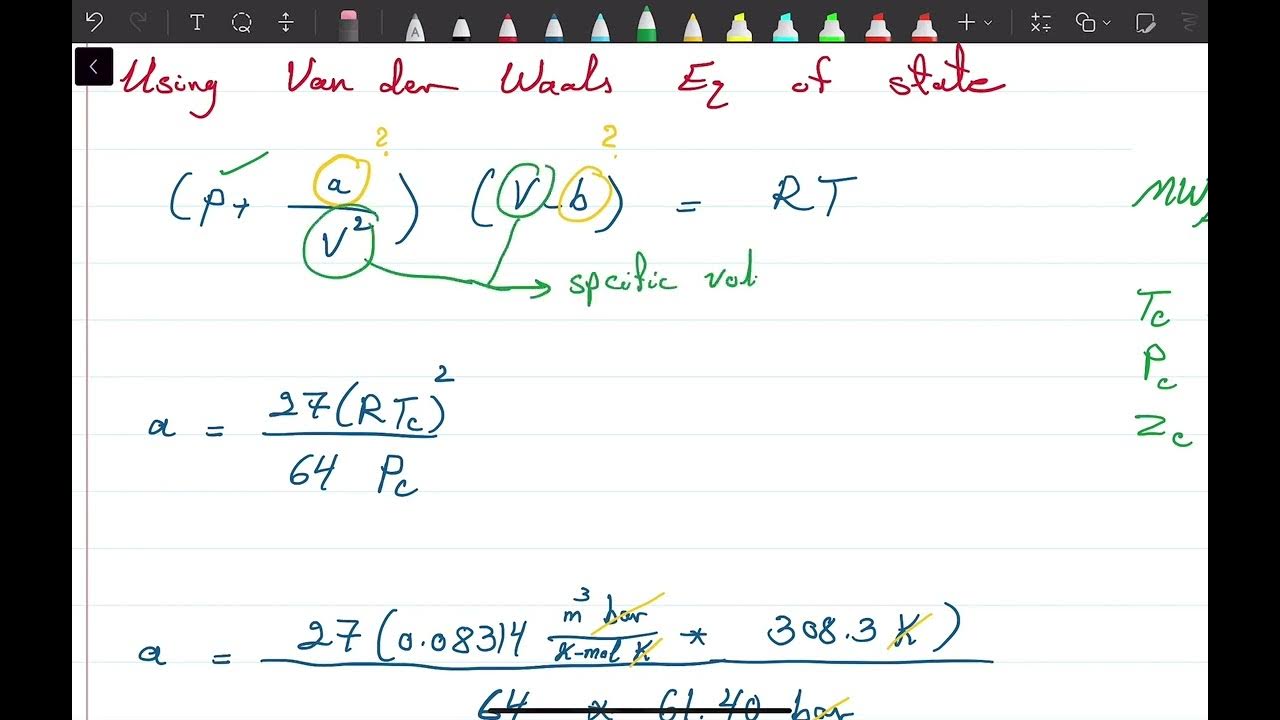 Using Van der Waals Eq of state
? ?
(P + a/V²) (V-b) = RT
MW
spcific vol
Tc
Pc
a = 27(RTc)² / 64 Pc
Zc
a = 27(0.08314 m³ bar / K-mol K * 308.3 K) / 64 × 61.40 bar